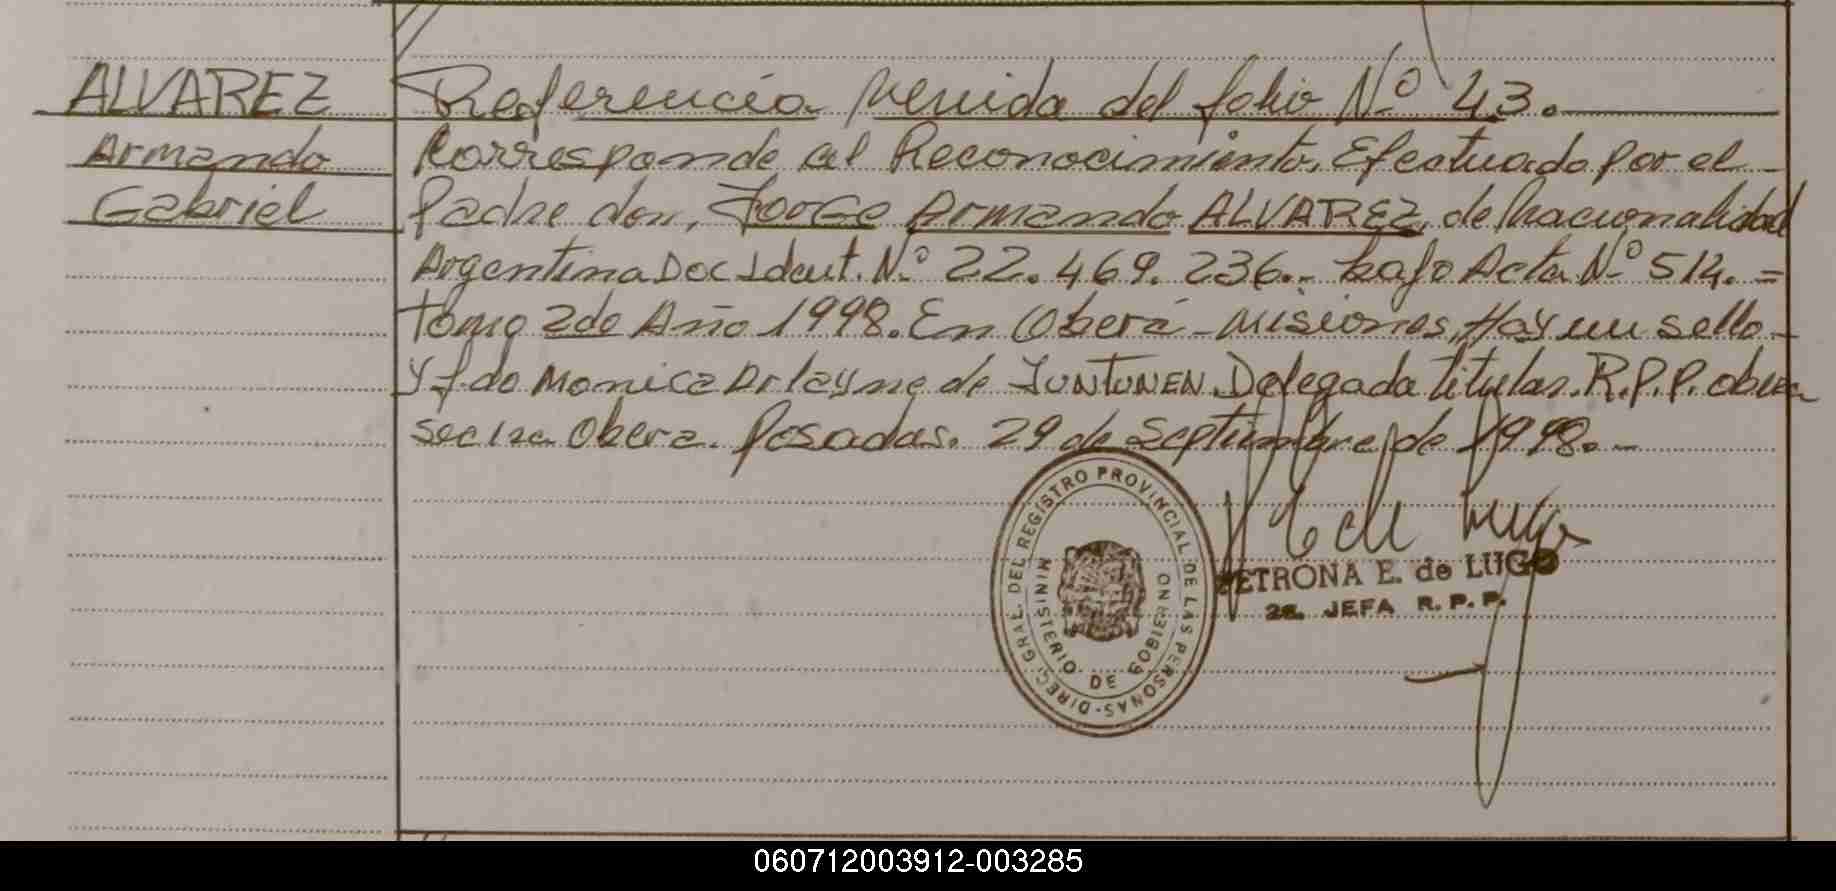 ALVAREZ
Armando
Gabriel
Referencia venida del folio Nº 43.
Corresponde al Reconocimiento, Efectuado por el
Padre don, Jorge Armando ALVAREZ, de Nacionalidad
Argentina Doc Ident. Nº 22.469.236.- bajo Acta Nº 514. =
Tomo 2do Año 1998. En Oberá - Misiones, Hay un sello -
y fdo Monica Arlayne de JUNTUNEN. Delegada titular. R.P.P.
Obera. Posadas. 29 de Septiembre de 1998.-
DIREC. GRAL. DEL REGISTRO PROVINCIAL DE LAS PERSONAS-
MINISTERIO DE GOBIERNO
PETRONA E. de LUGO
2a. JEFA R. P. P.
060712003912-003285